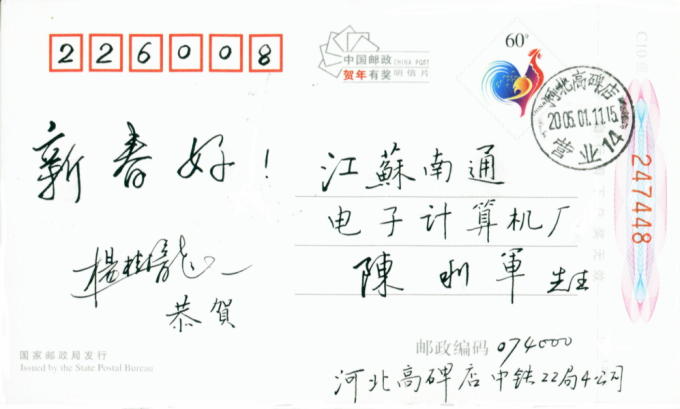 226008
中国邮政 CHINA POST
贺年有奖 明信片
60分
河北高碑店
2005.01.11.15
营业14
新春好!
江蘇南通
电子计算机厂
陳利軍 先生
恭賀
247448
国家邮政局发行
Issued by the State Postal Bureau
邮政编码 074000
河北高碑店中铁22局4公司